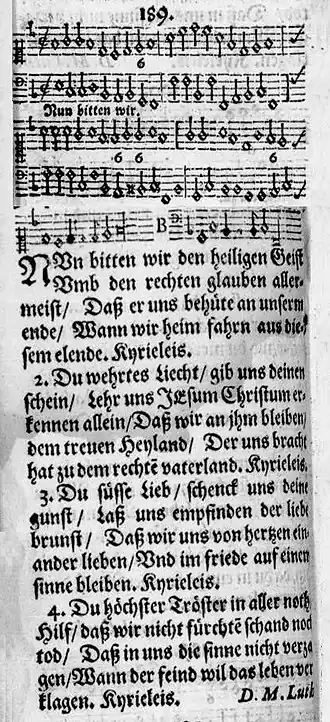 189.
6
Nun bitten wir.
6
6 6 6
B
NUn bitten wir den heiligen Geist
Vmb den rechten glauben aller-
meist/ Daß er uns behüte an unserm
ende/ Wann wir heim fahrn aus die-
sem elende. Kyrieleis.
2. Du wehrtes Liecht/ gib uns deinen
schein/ Lehr uns JEsum Christum er-
kennen allein/ Daß wir an jhm bleiben/
dem treuen Heyland/ Der uns bracht
hat zu dem rechtẽ vaterland. Kyrieleis.
3. Du süsse Lieb/ schenck uns deine
gunst/ Laß uns empfinden der liebe
brunst/ Daß wir uns von hertzen ein-
ander lieben/ Vnd im friede auf einen
sinne bleiben. Kyrieleis.
4. Du höchster Tröster in aller noth
Hilf/ daß wir nicht fürchtẽ schand noch
tod/ Daß in uns die sinne nicht verza
gen/ Wann der feind wil das leben ver
klagen. Kyrieleis. D. M. Luth